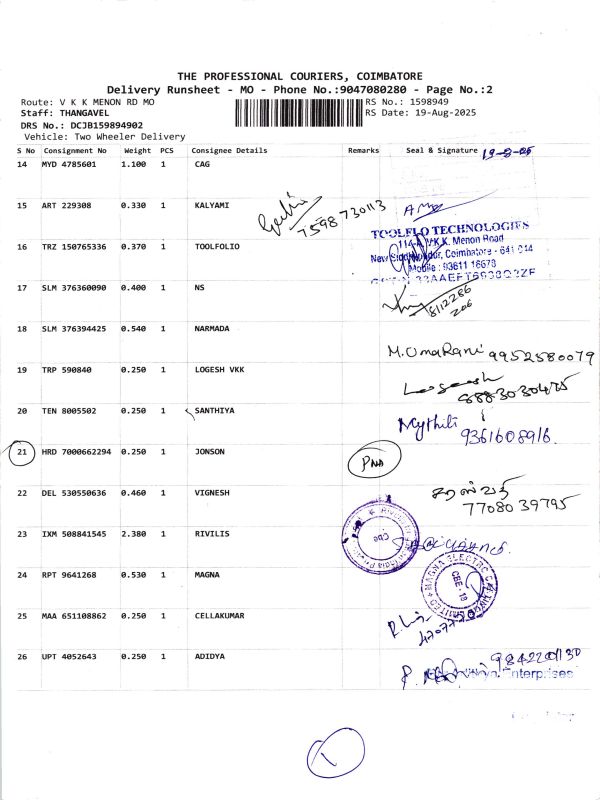 THE PROFESSIONAL COURIERS, COIMBATORE
Delivery Runsheet - MO - Phone No.:9047080280 - Page No.:2
Route: V K K MENON RD MO
RS No.: 1598949
Staff: THANGAVEL
RS Date: 19-Aug-2025
DRS No.: DCJB159894902
Vehicle: Two Wheeler Delivery
S No Consignment No Weight PCS Consignee Details Remarks Seal & Signature 19-8-25
14 MYD 4785601 1.100 1 CAG
15 ART 229308 0.330 1 KALYAMI 7598730113
TOOLFLO TECHNOLOGIES
114-A, V.K.K. Menon Road
16 TRZ 150765336 0.370 1 TOOLFOLIO
New Siddhapudur, Coimbatore - 641 044
Mobile : 93611 16678
17 SLM 376360090 0.400 1 NS
8112286
206
18 SLM 376394425 0.540 1 NARMADA
M.UmaRani 9952580079
19 TRP 590840 0.250 1 LOGESH VKK
20 TEN 8005502 0.250 1 SANTHIYA
Mythili
9361608916
21 HRD 7000662294 0.250 1 JONSON PNA
22 DEL 530550636 0.460 1 VIGNESH
7708039795
23 IXM 508841545 2.380 1 RIVILIS
24 RPT 9641268 0.530 1 MAGNA
MAGNA ELECTRO CASTINGS LIMITED
CBE-18
25 MAA 651108862 0.250 1 CELLAKUMAR
26 UPT 4052643 0.250 1 ADIDYA
Enterprises
1